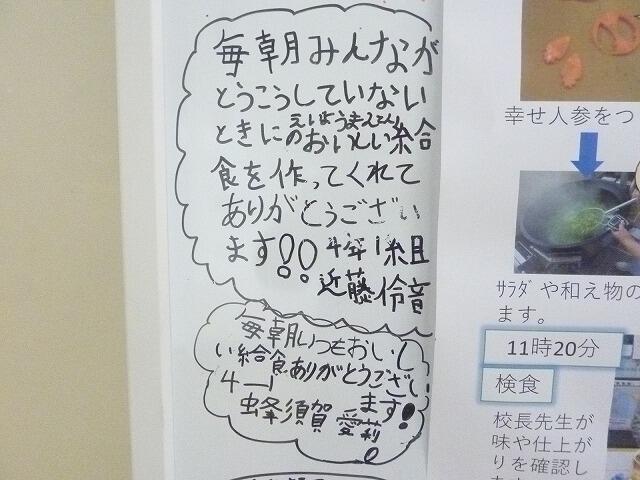 毎朝みんなが
とうこうしていない
ときにのおいしい給
えいようまんてん
食を作ってくれて
ありがとうござい
ます!! 4年1組
近藤伶音
毎朝いつもおいし
い給食ありがとうござい
4-1 ます!
蜂須賀愛莉
幸せ人参をつ
ｻﾗﾀﾞや和え物の
ます。
11時20分
検食
校長先生が
味や仕上が
りを確認し